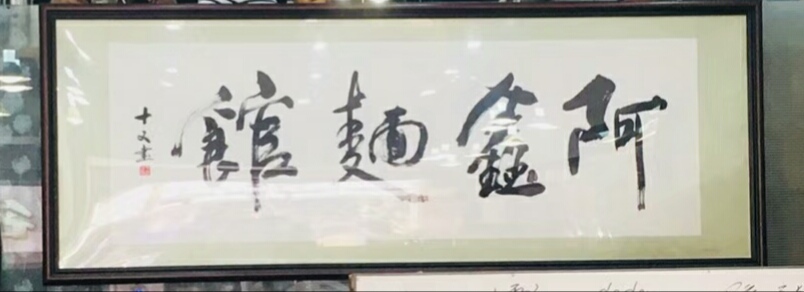 阿鑫麵館
十又書